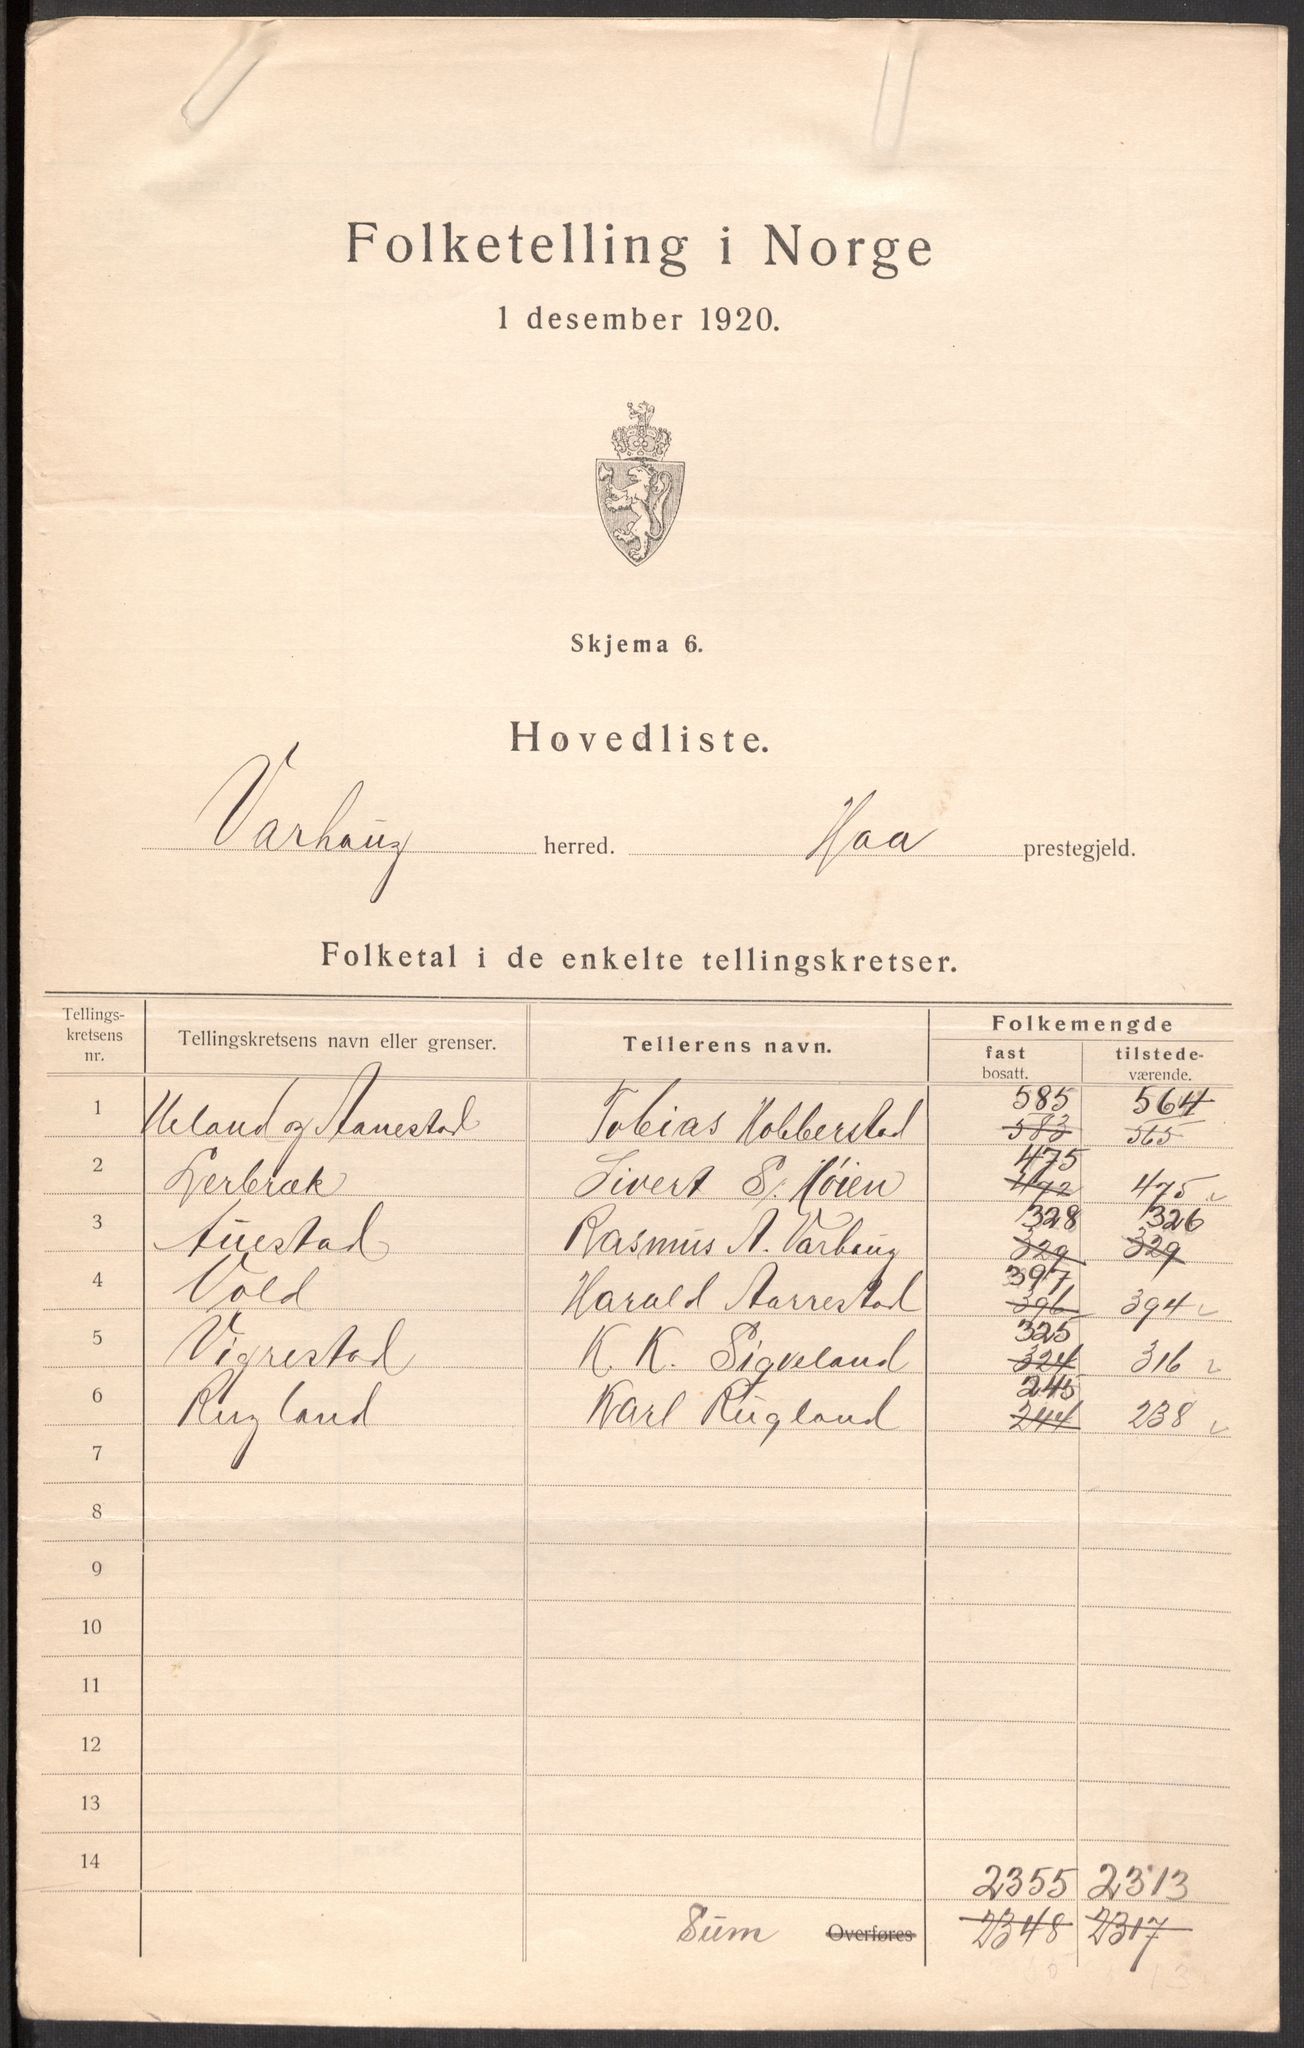 Folketelling i Norge
1 desember 1920.
Skjema 6.
Hovedliste.
Varhaug herred. Haa prestegjeld.
Folketal i de enkelte tellingskretser.
Tellings-
kretsens
nr.
Tellingskretsens navn eller grenser.
Tellerens navn.
Folkemengde
fast
bosatt.
tilstede-
værende.
585 564
1 Ueland og Aanestad Tobias Hobberstad 583 565
475
2 Lerbræk Sivert S. Høien 472 475
328 326
3 Auestad Rasmus A. Varhaug 329 329
397
4 Vold Harald Aarrestad 396 394
325
5 Vigrestad K. K. Sigveland 324 316
245
6 Rugland Karl Rugland 244 238
7
8
9
10
11
12
13
14
2355 2313
Sum Overføres 2348 2317